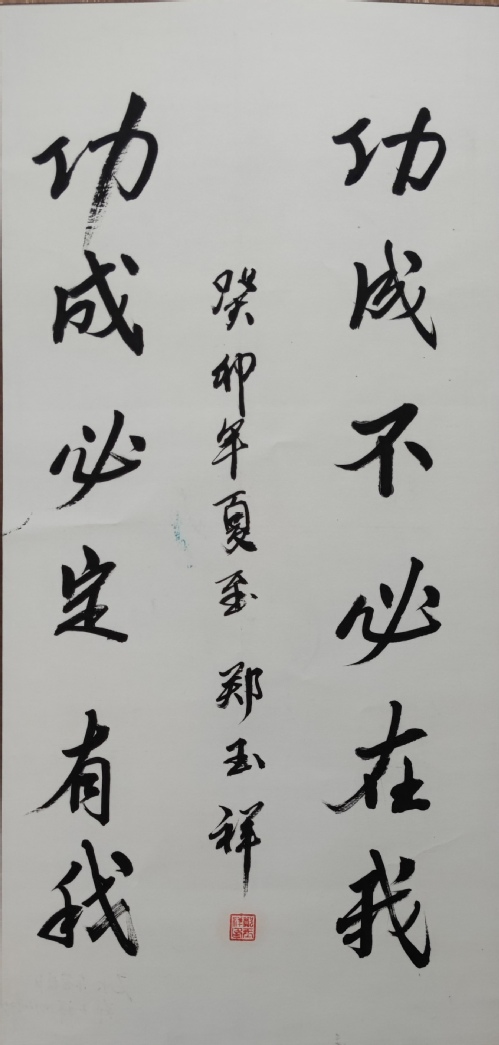 功成不必在我
癸卯年夏至 郑玉祥
功成必定有我